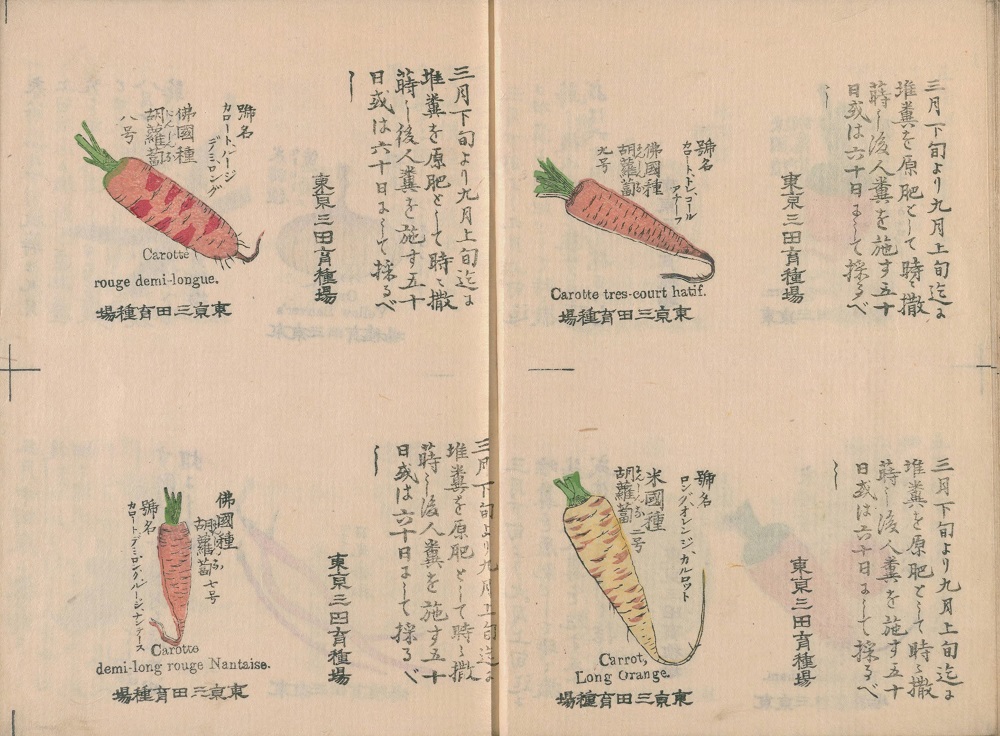 三月下旬より九月上旬迄に
堆糞を原肥として時々撒
蒔し後人糞を施す五十
日或は六十日まして採るべ
し
東京三田育種場
號名
カロートドン、コール
アチーフ
佛國種
胡蘿蔔
九号
Carotte tres-court hatif.
東京三田育種場
三月下旬より九月上旬迄に
堆糞を原肥として時々撒
蒔し後人糞を施す五十
日或は六十日まして採るべ
し
東京三田育種場
號名
カロート、ルージ
デミ、ロング
佛國種
胡蘿蔔
八号
Carotte
rouge demi-longue.
東京三田育種場
三月下旬より九月上旬迄に
堆糞を原肥として時々撒
蒔し後人糞を施す五十
日或は六十日まして採るべ
し
東京三田育種場
號名
ロングオレンジ、カルロット
米國種
胡蘿蔔 二号
Carrot,
Long Orange.
東京三田育種場
三月下旬より九月上旬迄に
堆糞を原肥として時々撒
蒔し後人糞を施す五十
日或は六十日まして採るべ
し
東京三田育種場
佛國種
胡蘿蔔 七号
號名
カロートデミ、ロングルージ、ナンテース
Carotte
demi-long rouge Nantaise.
東京三田育種場